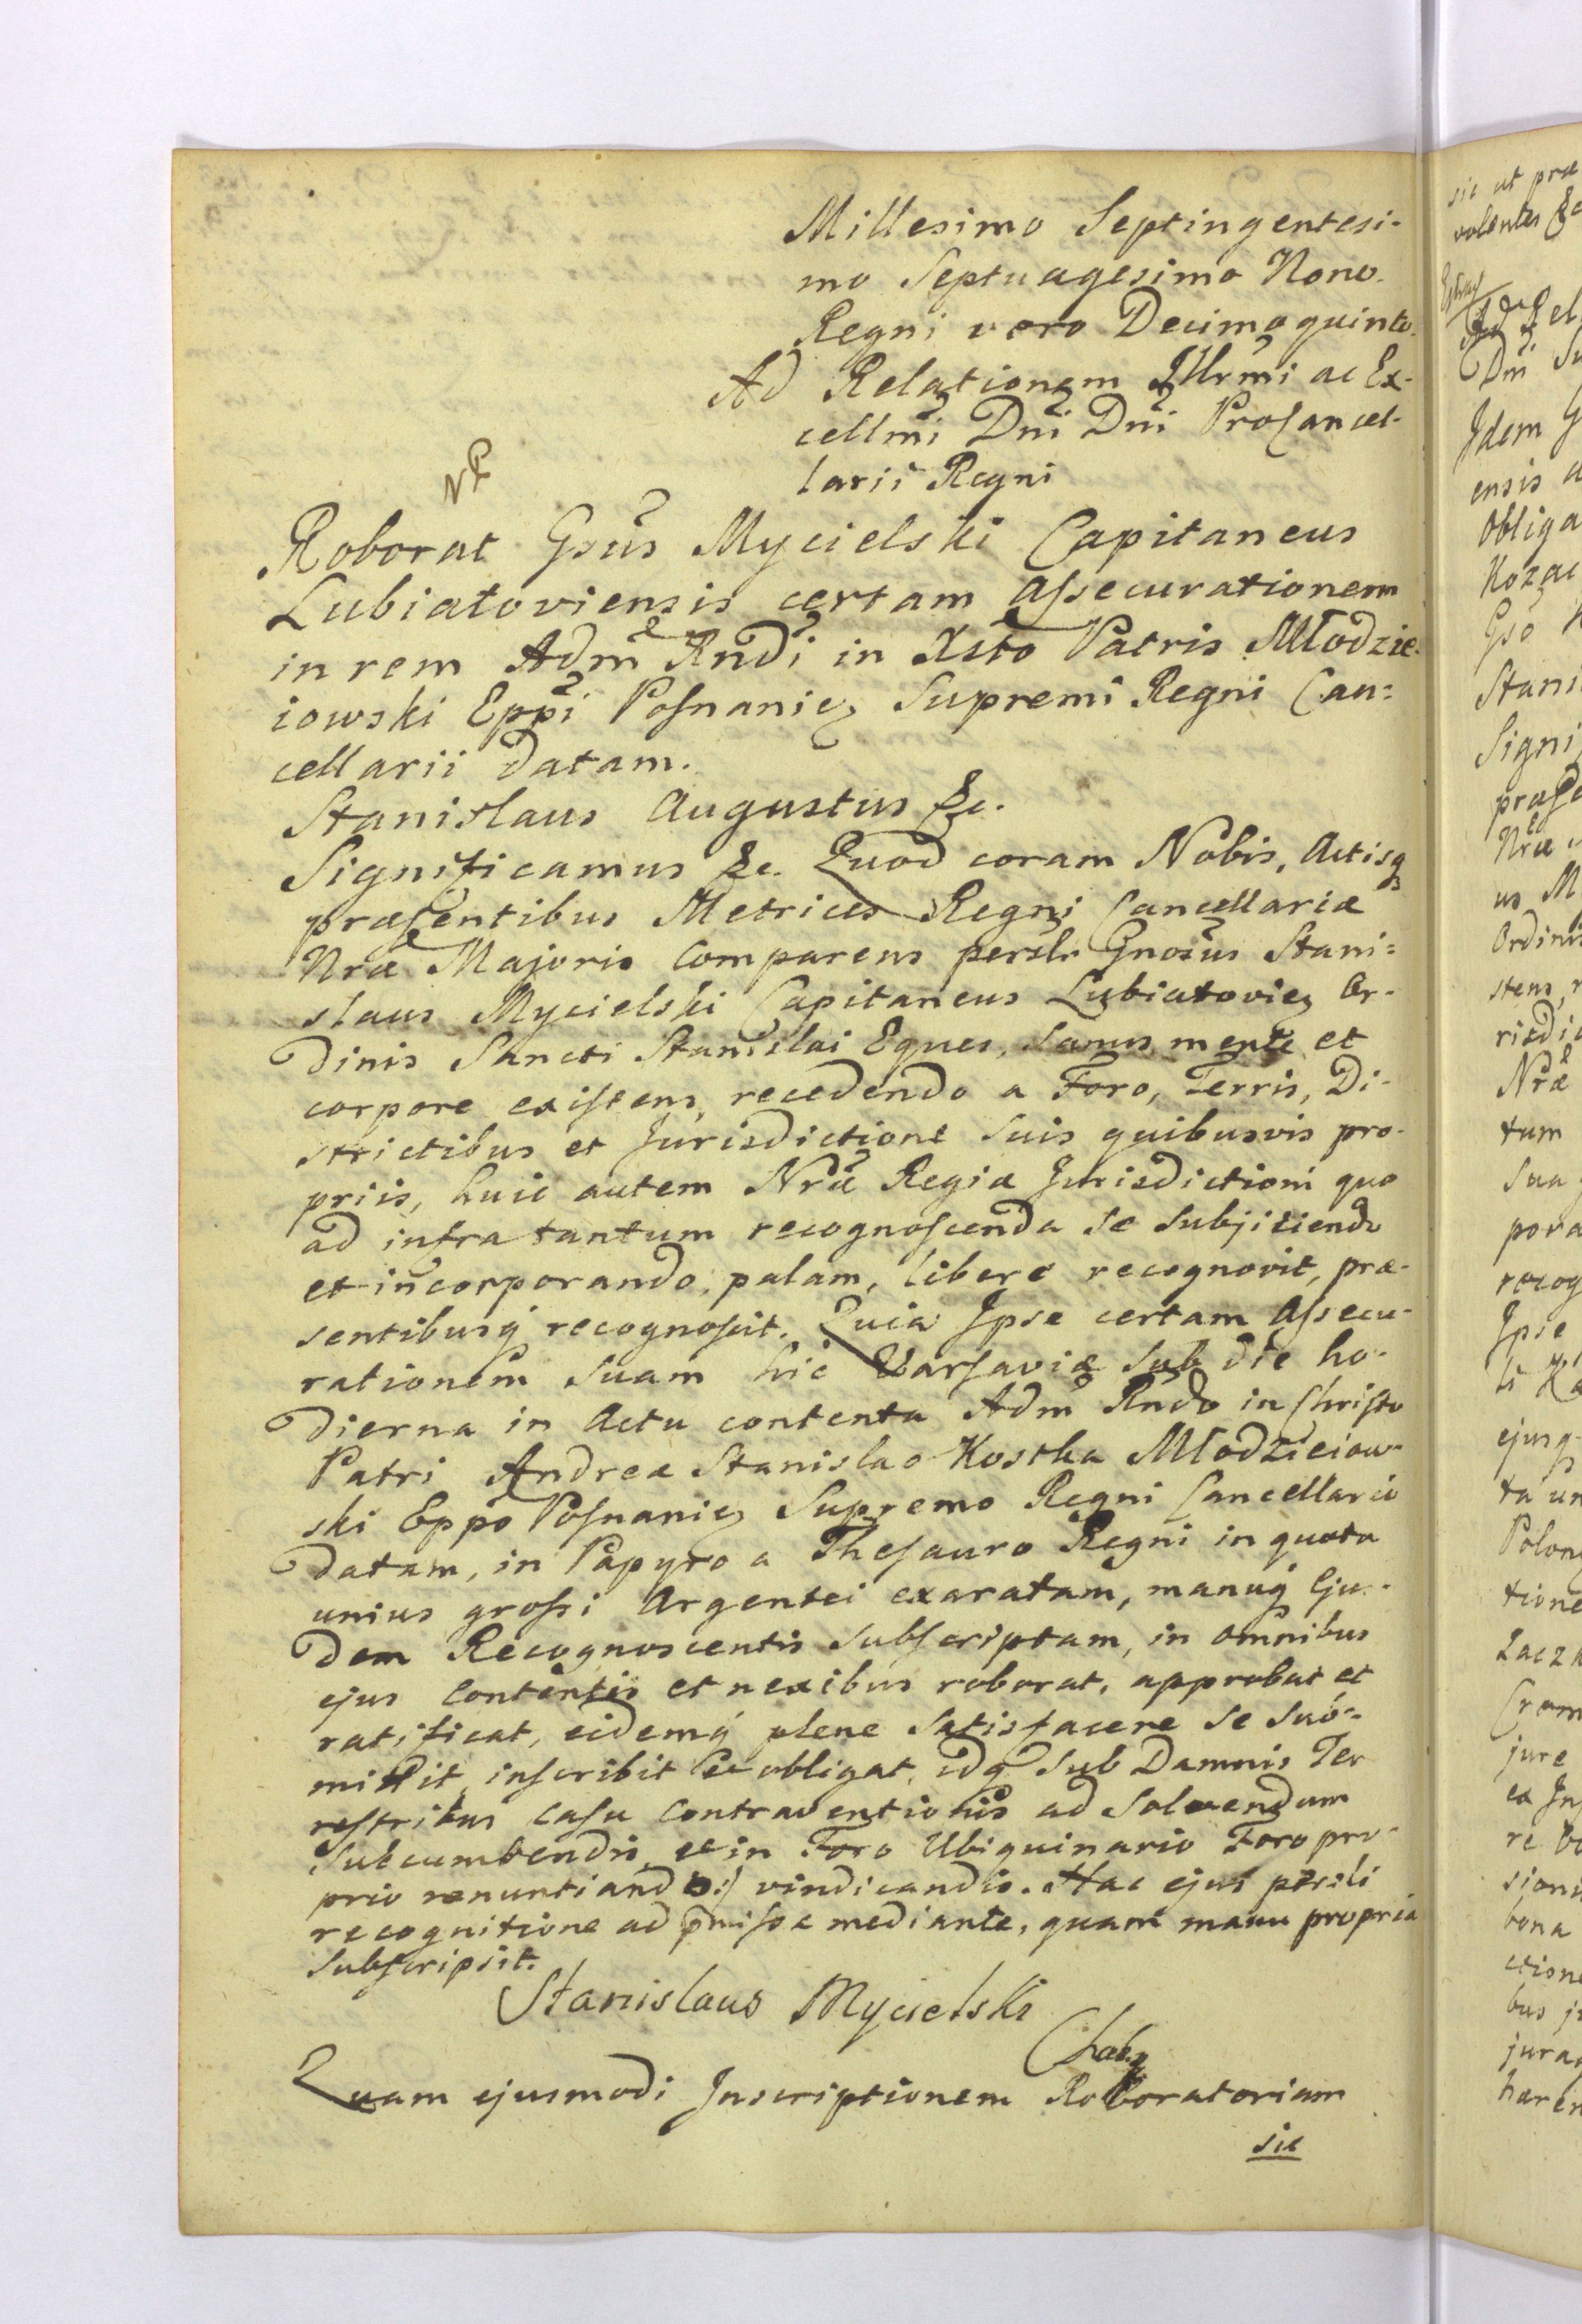 Millesimo Septingentesi-
mo Septuagesimo Nono.
Regni vero Decimoquinto.
Ad Relationem Illrmi ac Ex-
cellmi Dni Dni ProCancel-
larii Regni
Roborat Gsus Mycielski Capitaneus
Lubiatoviensis certam assecurationem
in rem Adm Rndi in Xsto Patris Młodzie-
iowski Eppi Posnanien Supremi Regni Can-
cellarii datam.
Stanislaus Augustus &c.
Significamus &c. Quod coram Nobis, Actisq
præsentibus Metrices Regni Cancellariæ
Nræ Majoris Comparens perslr Gnosus Stani-
slaus Mycielski Capitaneus Lubiatovien Or-
dinis Sancti Stanislai Eques, sanus mente et
corpore existens, recedendo a Foro, Terris, Di-
strictibus et Jurisdictione suis quibusvis pro-
priis, huic autem Nræ Regiæ Jurisdictioni quo
ad infra tantum recognoscenda se subjiciendo
et incorporando, palam, libere recognovit, præ-
sentibusq recognoscit. Quia Ipse certam Assecu-
rationem suam hic Varsaviæ sub die ho-
dierna in Actu contenta Adm Rndo in Christo
Patri Andreæ Stanislao Kostka Młodzieiow-
ski Eppo Posnanien Supremo Regni Cancellario
datam, in Papyro a Thesauro Regni in quota
unius grossi Argentei exaratam, manuq Eju-
dem Recognoscentis subscriptam, in omnibus
ejus contentis et nexibus roborat, approbat et
ratificat, eidemq plene satisfacere se sub-
mittit inscribit et obligat, idq sub Damnis Ter
restribus casu contraventionis ad solvendum
succumbendis et in Foro Ubiquinario Foro pro-
prio renuntiando :/ vindicandis. Hac ejus persli
recognitione ad pmissa mediante, quam manu propria
subscripsit.
Stanislaus Mycielski
Quam ejusmodi Inscriptionem Roboratoriam
sic